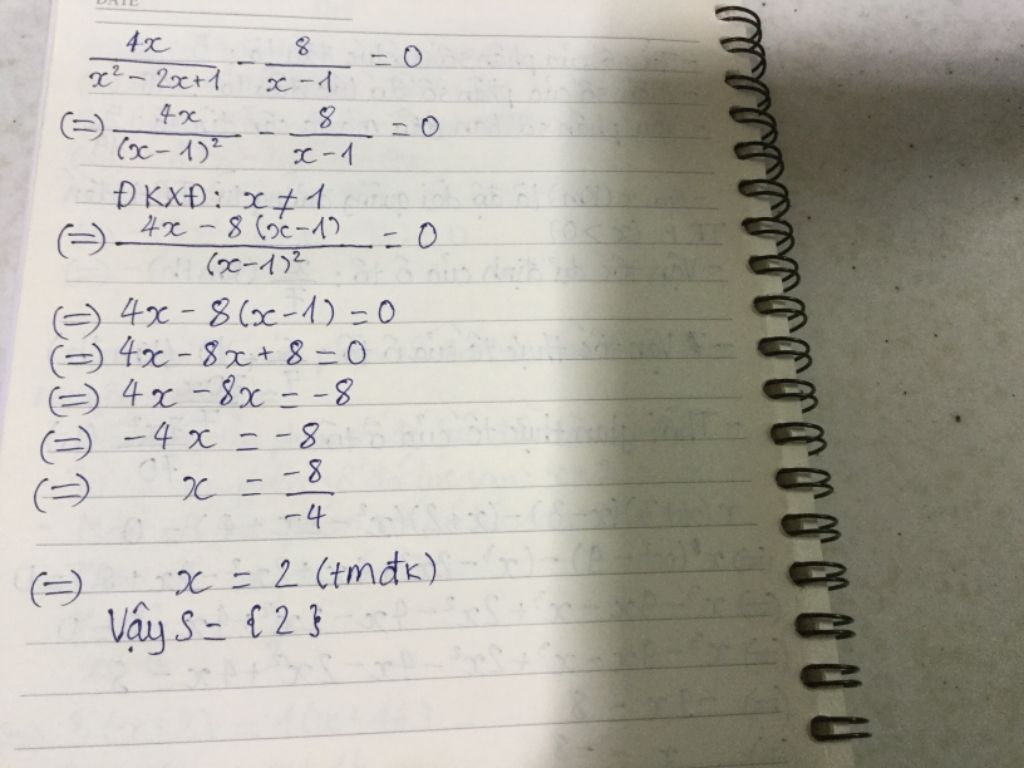 DATE
4x / (x² - 2x+1) - 8 / (x-1) = 0
(=) 4x / (x-1)² - 8 / (x-1) = 0
ĐKXĐ: x ≠ 1
(=) (4x - 8(x-1)) / (x-1)² = 0
(=) 4x - 8(x-1) = 0
(=) 4x - 8x + 8 = 0
(=) 4x - 8x = -8
(=) -4x = -8
(=) x = -8 / -4
(=) x = 2 (tmđk)
Vậy S = {2}